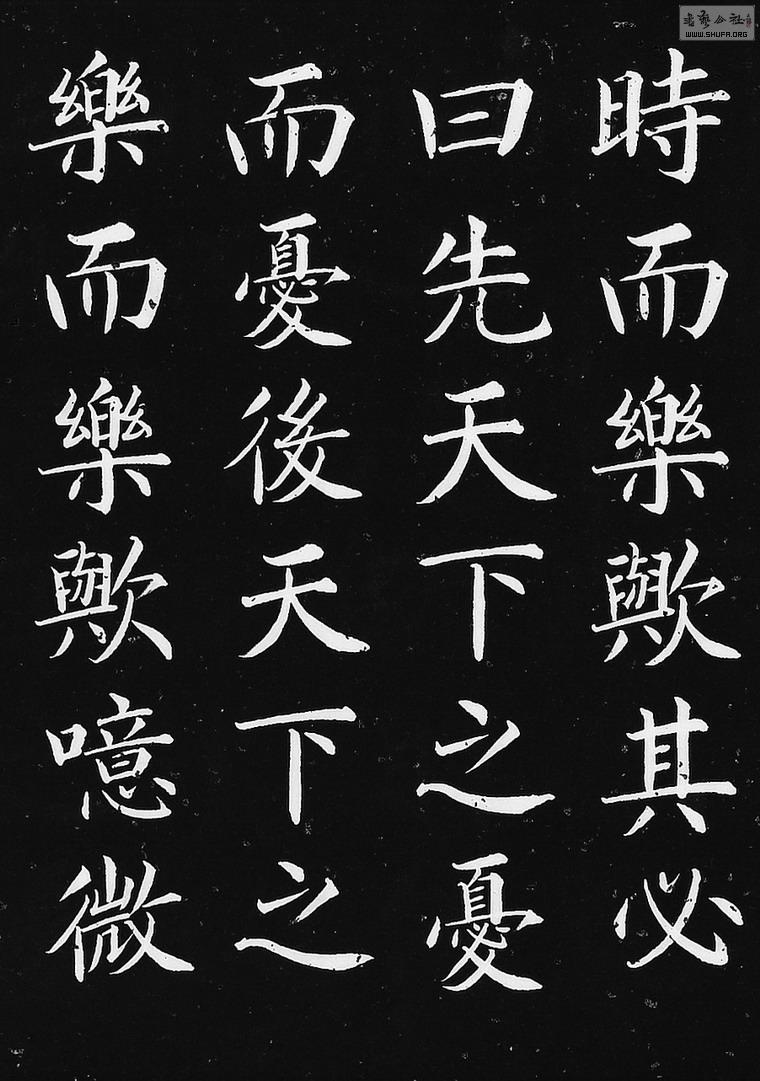 時而樂歟其必
曰先天下之憂
而憂後天下之
樂而樂歟噫微
WWW.SHUFA.ORG